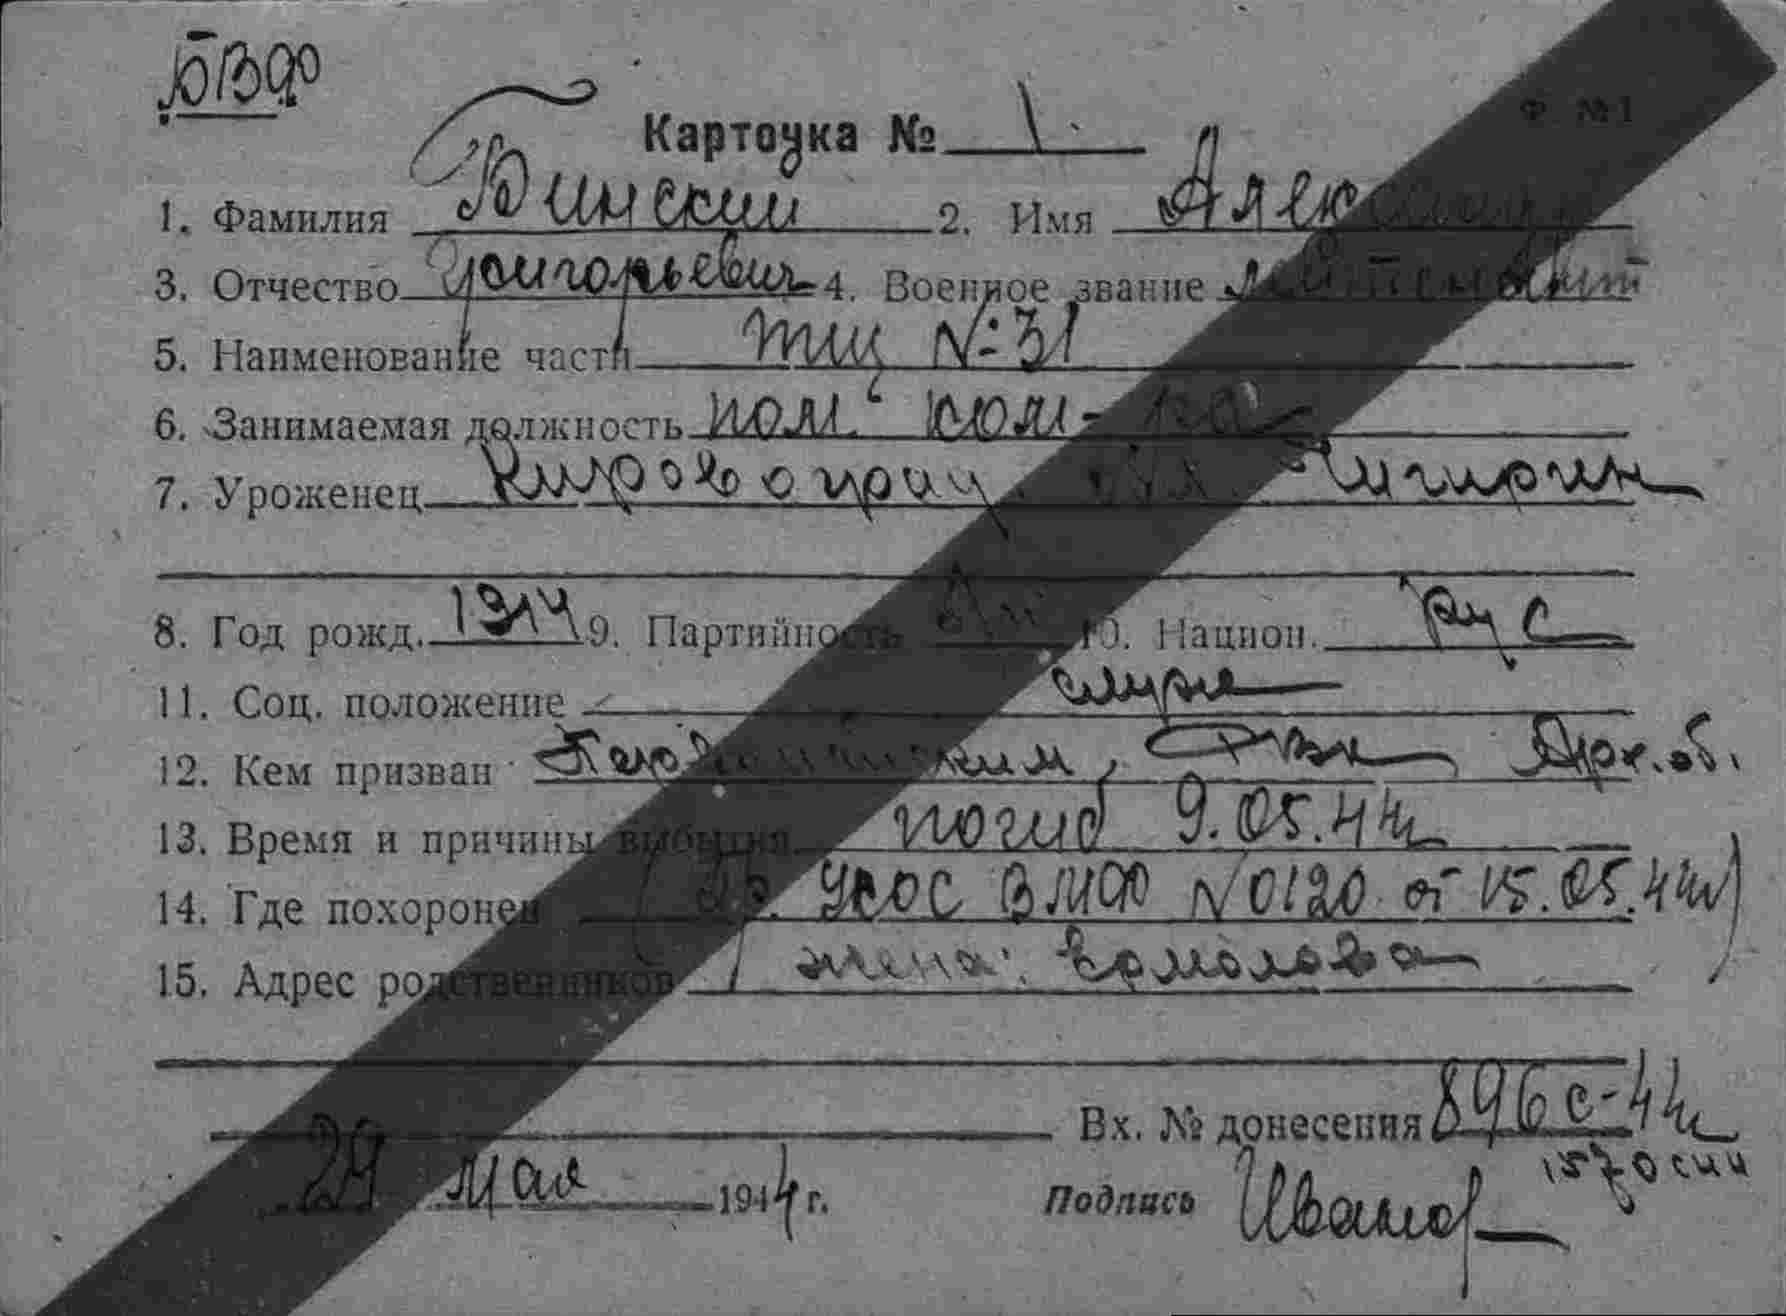 Карточка № 1
Ф №1
1. Фамилия Бинский 2. Имя Александр
3. Отчество Григорьевич 4. Военное звание лейтенант
5. Наименование части тщ № 31
6. Занимаемая должность пом. ком-ра
7. Уроженец Чигирин
8. Год рожд. 1914 9. Партийность 10. Национ. рус
11. Соц. положение служ
12. Кем призван РВК Арх. об.
13. Время и причины выбытия погиб 9.05.44г
14. Где похоронен УКОС ВМФ №0120 от 15.05.44г)
15. Адрес родственников жена:
Вх. № донесения 896с-44г
1570сии
29 мая 1944 г. Подпись Иванов